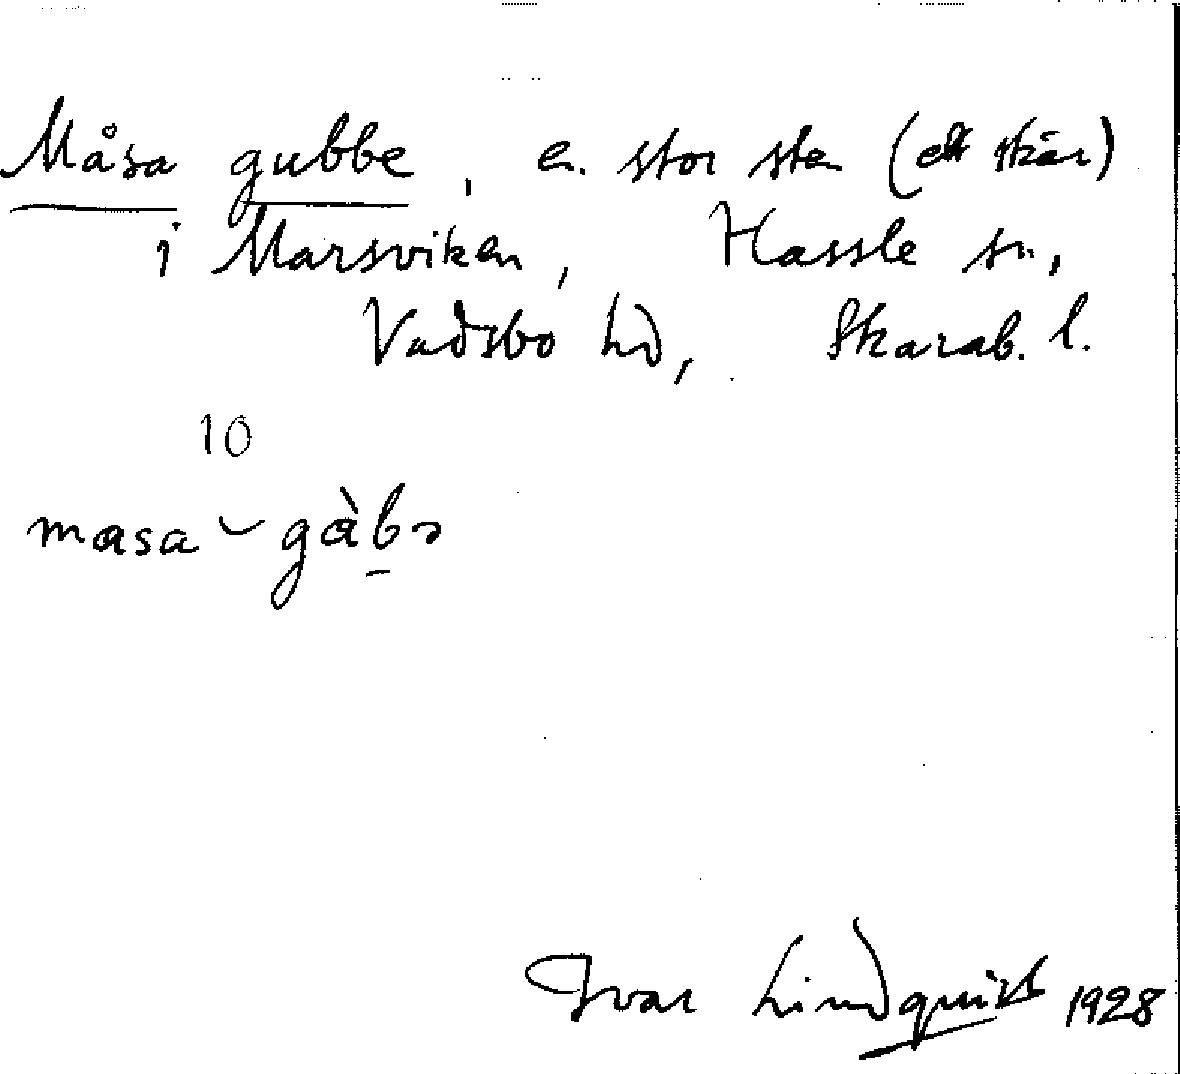 Måsa gubbe, en stor sten (ett skär)
i Marsviken, Hassle sn,
Vadsbo hd, Skarab. l.
10
masa ‿ gàbə
Ivar Lindquist 1928